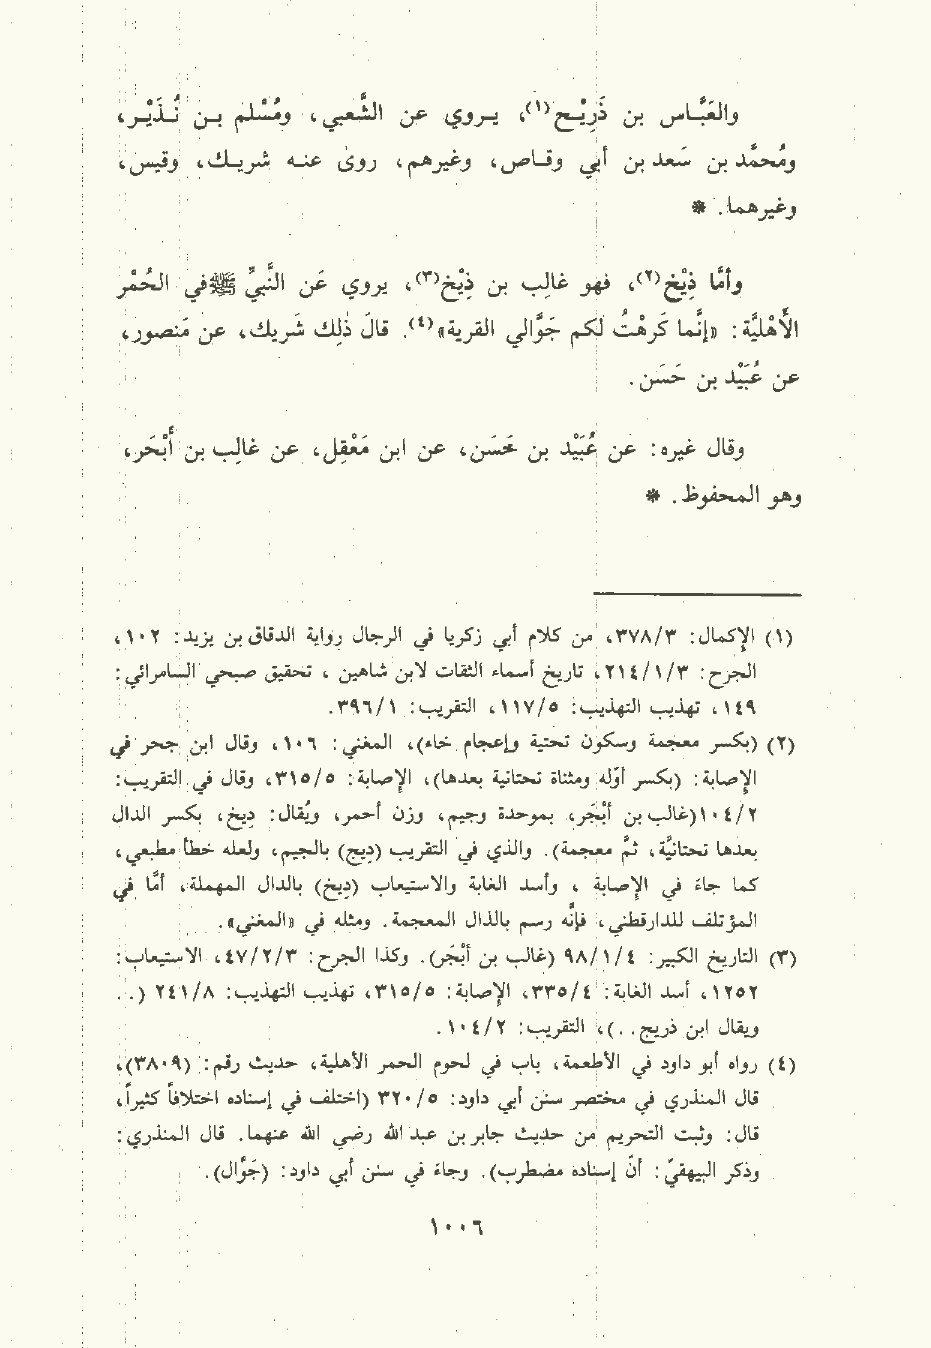 والعَبَّاس بن ذَرِيْح(١)، يروي عن الشَّعبي، ومُسْلم بن نُذَيْر،
ومُحمَّد بن سَعد بن أبي وقاص، وغيرهم، روى عنه شريك، وقيس،
وغيرهما. *
وأمَّا ذِيْخ(٢)، فهو غالِب بن ذِيْخ(٣)، يروي عَن النَّبيِّ ﷺ في الحُمْر
الأَهْليَّة: «إنَّما كَرهْتُ لَكم جَوَّالي القرية»(٤). قالَ ذلِك شَريك، عن مَنصور،
عن عُبَيْد بن حَسَن.
وقال غيره: عن عُبَيْد بن حَسَن، عن ابن مَعْقِل، عن غالِب بن أَبْحَر،
وهو المحفوظ. *
(١) الإكمال: ٣٧٨/٣، من كلام أبي زكريا في الرجال رواية الدقاق بن يزيد: ١٠٢،
الجرح: ٢١٤/١/٣، تاريخ أسماء الثقات لابن شاهين ، تحقيق صبحي السامرائي:
١٤٩، تهذيب التهذيب: ١١٧/٥، التقريب: ٣٩٦/١.
(٢) (بكسر معجمة وسكون تحتية وإعجام خاء)، المغني: ١٠٦، وقال ابن حجر في
الإصابة: (بكسر أوّله ومثناة تحتانية بعدها)، الإصابة: ٣١٥/٥، وقال في التقريب:
١٠٤/٢(غالب بن أبْجَر، بموحدة وجيم، وزن أحمر، ويُقال: دِيخ، بكسر الدال
بعدها تحتانيَّة، ثمَّ معجمة). والذي في التقريب (دِيج) بالجيم، ولعله خطأ مطبعي،
كما جاءَ في الإصابة ، وأسد الغابة والاستيعاب (دِيخ) بالدال المهملة، أمَّا في
المؤتلف للدارقطني، فإنَّه رسم بالذال المعجمة. ومثله في «المغني».
(٣) التاريخ الكبير: ٩٨/١/٤ (غالب بن أبْجَر). وكذا الجرح: ٤٧/٢/٣، الاستيعاب:
١٢٥٢، أسد الغابة: ٣٣٥/٤، الإصابة: ٣١٥/٥، تهذيب التهذيب: ٢٤١/٨ (..
ويقال ابن ذريج..)، التقريب: ١٠٤/٢.
(٤) رواه أبو داود في الأطعمة، باب في لحوم الحمر الأهلية، حديث رقم: (٣٨٠٩)،
قال المنذري في مختصر سنن أبي داود: ٣٢٠/٥ (اختلف في إسناده اختلافاً كثيراً،
قال: وثبت التحريم من حديث جابر بن عبد الله رضي الله عنهما. قال المنذري:
وذكر البيهقيّ: أنّ إسناده مضطرب). وجاءَ في سنن أبي داود: (جَوَّال).
١٠٠٦